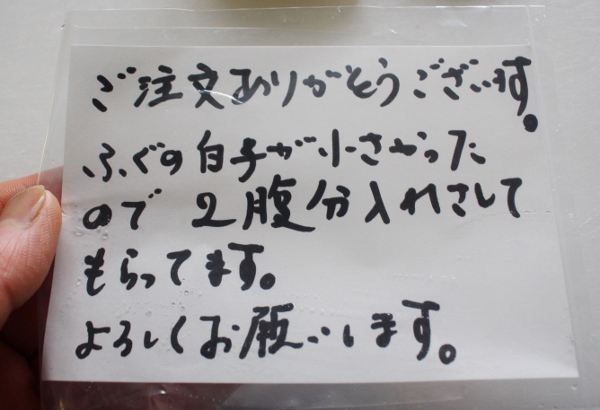 ご注文ありがとうございます。
ふぐの白子が小さかった
ので 2腹分入れさして
もらってます。
よろしくお願いします。